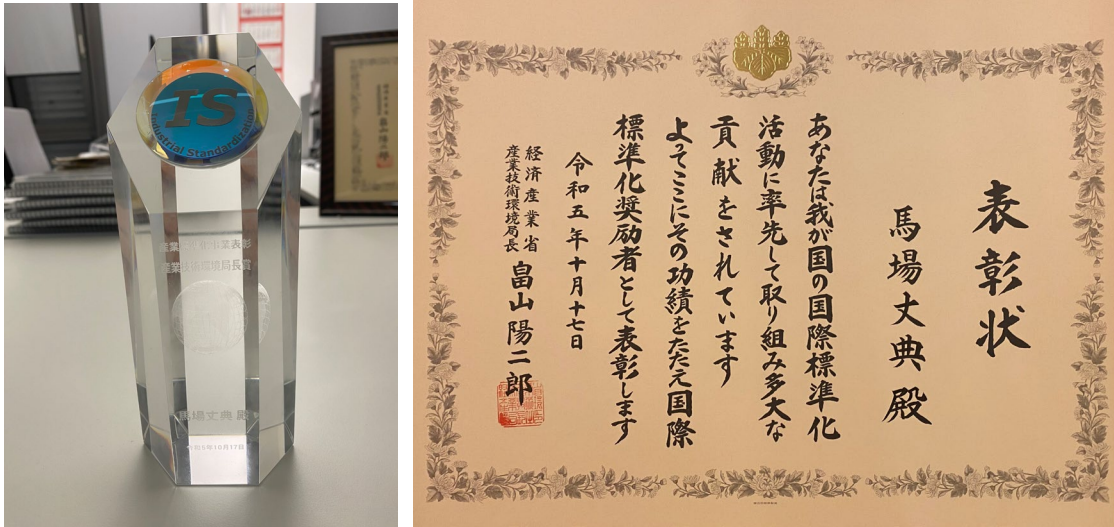 IS
Industrial Standardization
産業標準化事業表彰
産業技術環境局長賞
馬場丈典 殿
令和5年10月17日
表彰状
馬場丈典殿
あなたは我が国の国際標準化
活動に率先して取り組み多大な
貢献をされています
よってここにその功績をたたえ国際
標準化奨励者として表彰します
令和五年十月十七日
経済産業省
産業技術環境局長
畠山陽二郎